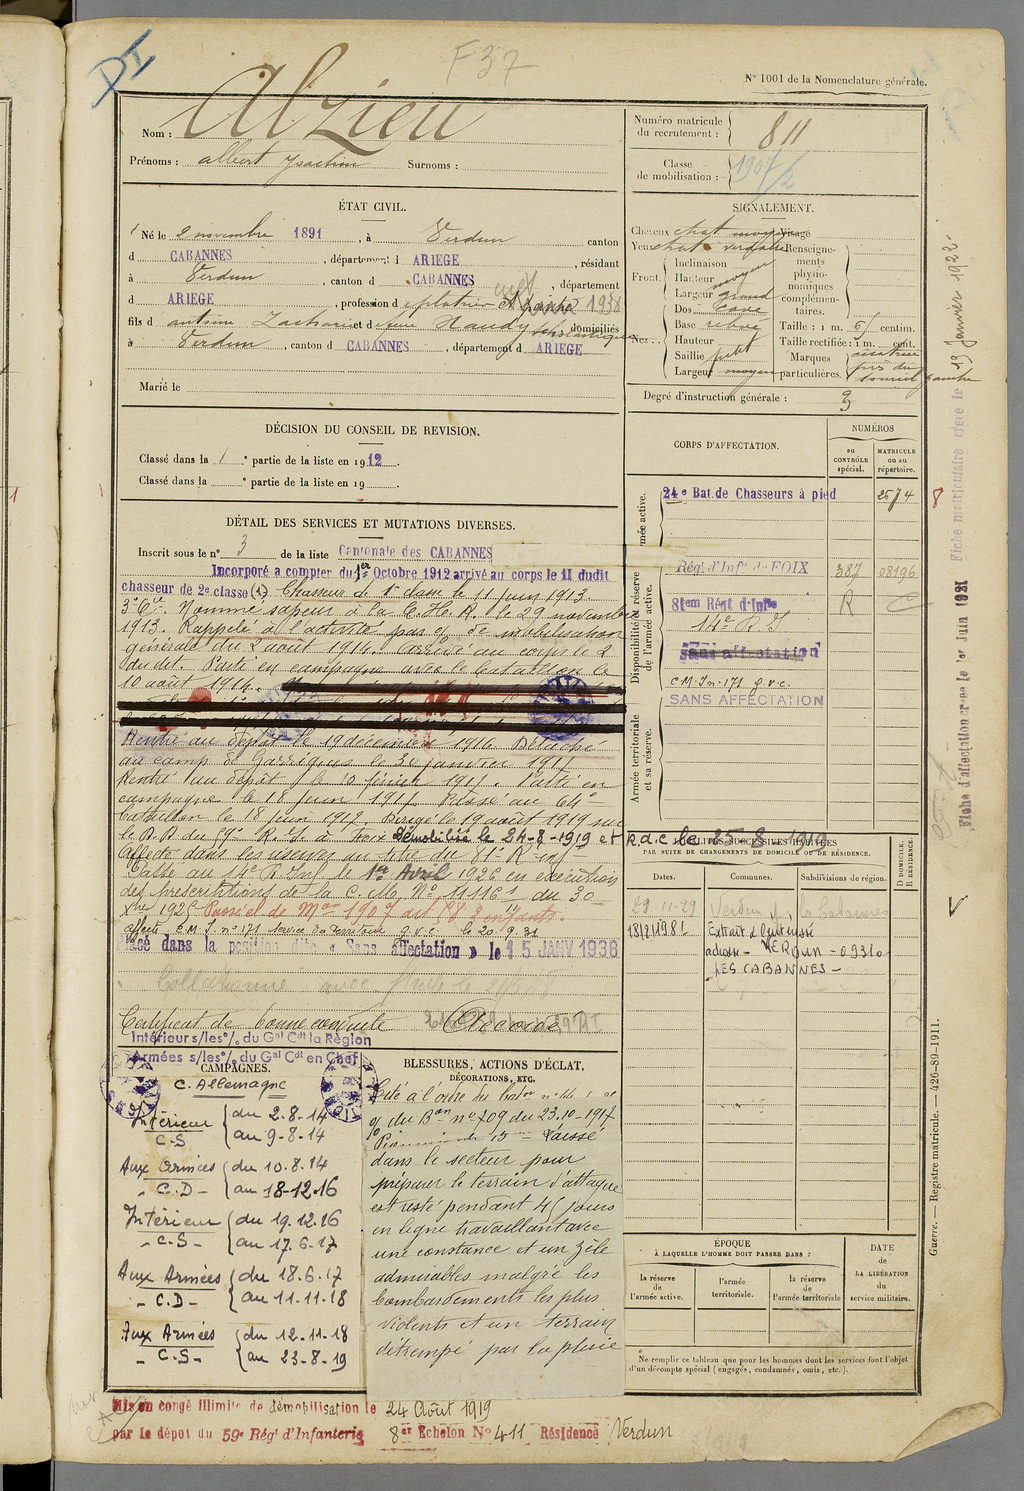 DI
F37
N° 1001 de la Nomenclature générale.
Nom : Alzieu
Prénoms : Albert Surnoms :
Numéro matricule du recrutement : 811
Classe de mobilisation : 1907/2
ÉTAT CIVIL.
Né le 2 novembre 1891, à Verdun canton
d CABANNES, département d ARIEGE, résidant
à Verdun, canton d CABANNES, département
d ARIEGE, profession d 1938
fils d antoine et d feue domiciliés
à Verdun, canton d CABANNES, département d ARIEGE
Marié le
SIGNALEMENT.
Cheveux chat Visage
Yeux chat verdatre Renseignements physionomiques complémentaires.
Front. Inclinaison
Hauteur moyen
Largeur grand
Nez. Dos cave
Base
Hauteur
Saillie petit
Largeur moyen
Taille : 1 m. 61 centim.
Taille rectifiée : 1 m. cent.
Marques particulières. cicatrice près du sourcil gauche
Degré d'instruction générale : 3
DÉCISION DU CONSEIL DE REVISION.
Classé dans la 1 e partie de la liste en 1912.
Classé dans la e partie de la liste en 19
DÉTAIL DES SERVICES ET MUTATIONS DIVERSES.
Inscrit sous le n° 3 de la liste Cantonale des CABANNES
Incorporé à compter du 1er Octobre 1912 arrivé au corps le 11 dudit
chasseur de 2e classe (1). Chasseur de 1e classe le 11 juin 1913.
3e Cie. Nommé sapeur à la C.H.R. le 29 novembre
1913. Rappelé à l'activité par % de mobilisation
générale du 2 août 1914. Arrivé au corps le 2
du dit. Parti en campagne avec le bataillon le
10 août 1914.
Rentré au dépôt le 19 décembre 1916. Détaché
au camp de Garrigues le 30 janvier 1917
Rentré au dépôt le 10 février 1917. Parti en
campagne le 18 juin 1917. Passé au 64e
bataillon le 18 juin 1917. Dirigé le 19 août 1919 sur
le D.D. du 59e R.I. à Foix Démobilisé le 24-8-1919 et R.d.c. le 25-8-1919
Affecté dans les réserves au titre du 81e R. inf
Passé au 14e R. Inf. le 1er Avril 1926 en exécution
des prescriptions de la C.M. N° 11161 du 30
Xbre 1925 Passé cl de Mon 1907 2 enfants.
affecté C.M.I. n° 171 service du Territoire g.v.c. le 20.9.31
Placé dans la position dite « Sans affectation » le 15 JANV 1938
Certificat de bonne conduite Accordé
CORPS D'AFFECTATION.
NUMÉROS
au CONTRÔLE spécial.
MATRICULE ou au répertoire.
Armée active.
24e Bat. de Chasseurs à pied 2574
Disponibilité et réserve de l'armée active.
Régt d'Infie de FOIX 387 08196
81em Régt d'Infie R C
14e R.I
Sans affectation
C.M.In-171 g.v.c.
SANS AFFECTATION
Armée territoriale et sa réserve.
LOCALITÉS SUCCESSIVES HABITÉES
PAR SUITE DE CHANGEMENTS DE DOMICILE OU DE RÉSIDENCE.
Dates. Communes. Subdivisions de région. D DOMICILE. R RÉSIDENCE.
29-11-29 Verdun
adresse - VERDUN - 09310
LES CABANNES -
Intérieur s/les % du Gal Cdt la Région
Armées s/les % du Gal Cdt en Chef
CAMPAGNES.
C. Allemagne
Intérieur C.S (du 2-8-14
au 9-8-14
Aux Armées - C.D - (du 10.8.14
au 18-12.16
Intérieur - C.S - (du 19.12.16
au 17.6.17
Aux Armées - C.D - (du 18.6.17
au 11.11.18
Aux Armées - C.S - (du 12.11.18
au 23-8-19
BLESSURES, ACTIONS D'ÉCLAT,
DÉCORATIONS, ETC.
Cité à l'ordre du
du Bon n° 709 du 23.10-1917
Laissé
dans le secteur pour
préparer le terrain d'attaque
est resté pendant 45 jours
en ligne travaillant avec
une constance et un zèle
admirables malgré les
bombardements les plus
violents et un terrain
détrempé par la pluie
ÉPOQUE
À LAQUELLE L'HOMME DOIT PASSER DANS :
la réserve de l'armée active.
l'armée territoriale.
la réserve de l'armée territoriale
DATE de LA LIBÉRATION du service militaire.
Ne remplir ce tableau que pour les hommes dont les services font l'objet
d'un décompte spécial (engagés, condamnés, omis, etc.).
Mis en congé illimité de démobilisation le 24 Août 1919
par le dépôt du 59e Régt d'Infanterie 8er Echelon N° 411 Résidence Verdun
Fiche matriculaire créée le 13 Janvier 1922-
Fiche d'affectation créée le 1er Juin 1921
Guerre. — Registre matricule. — 426-89-1911.